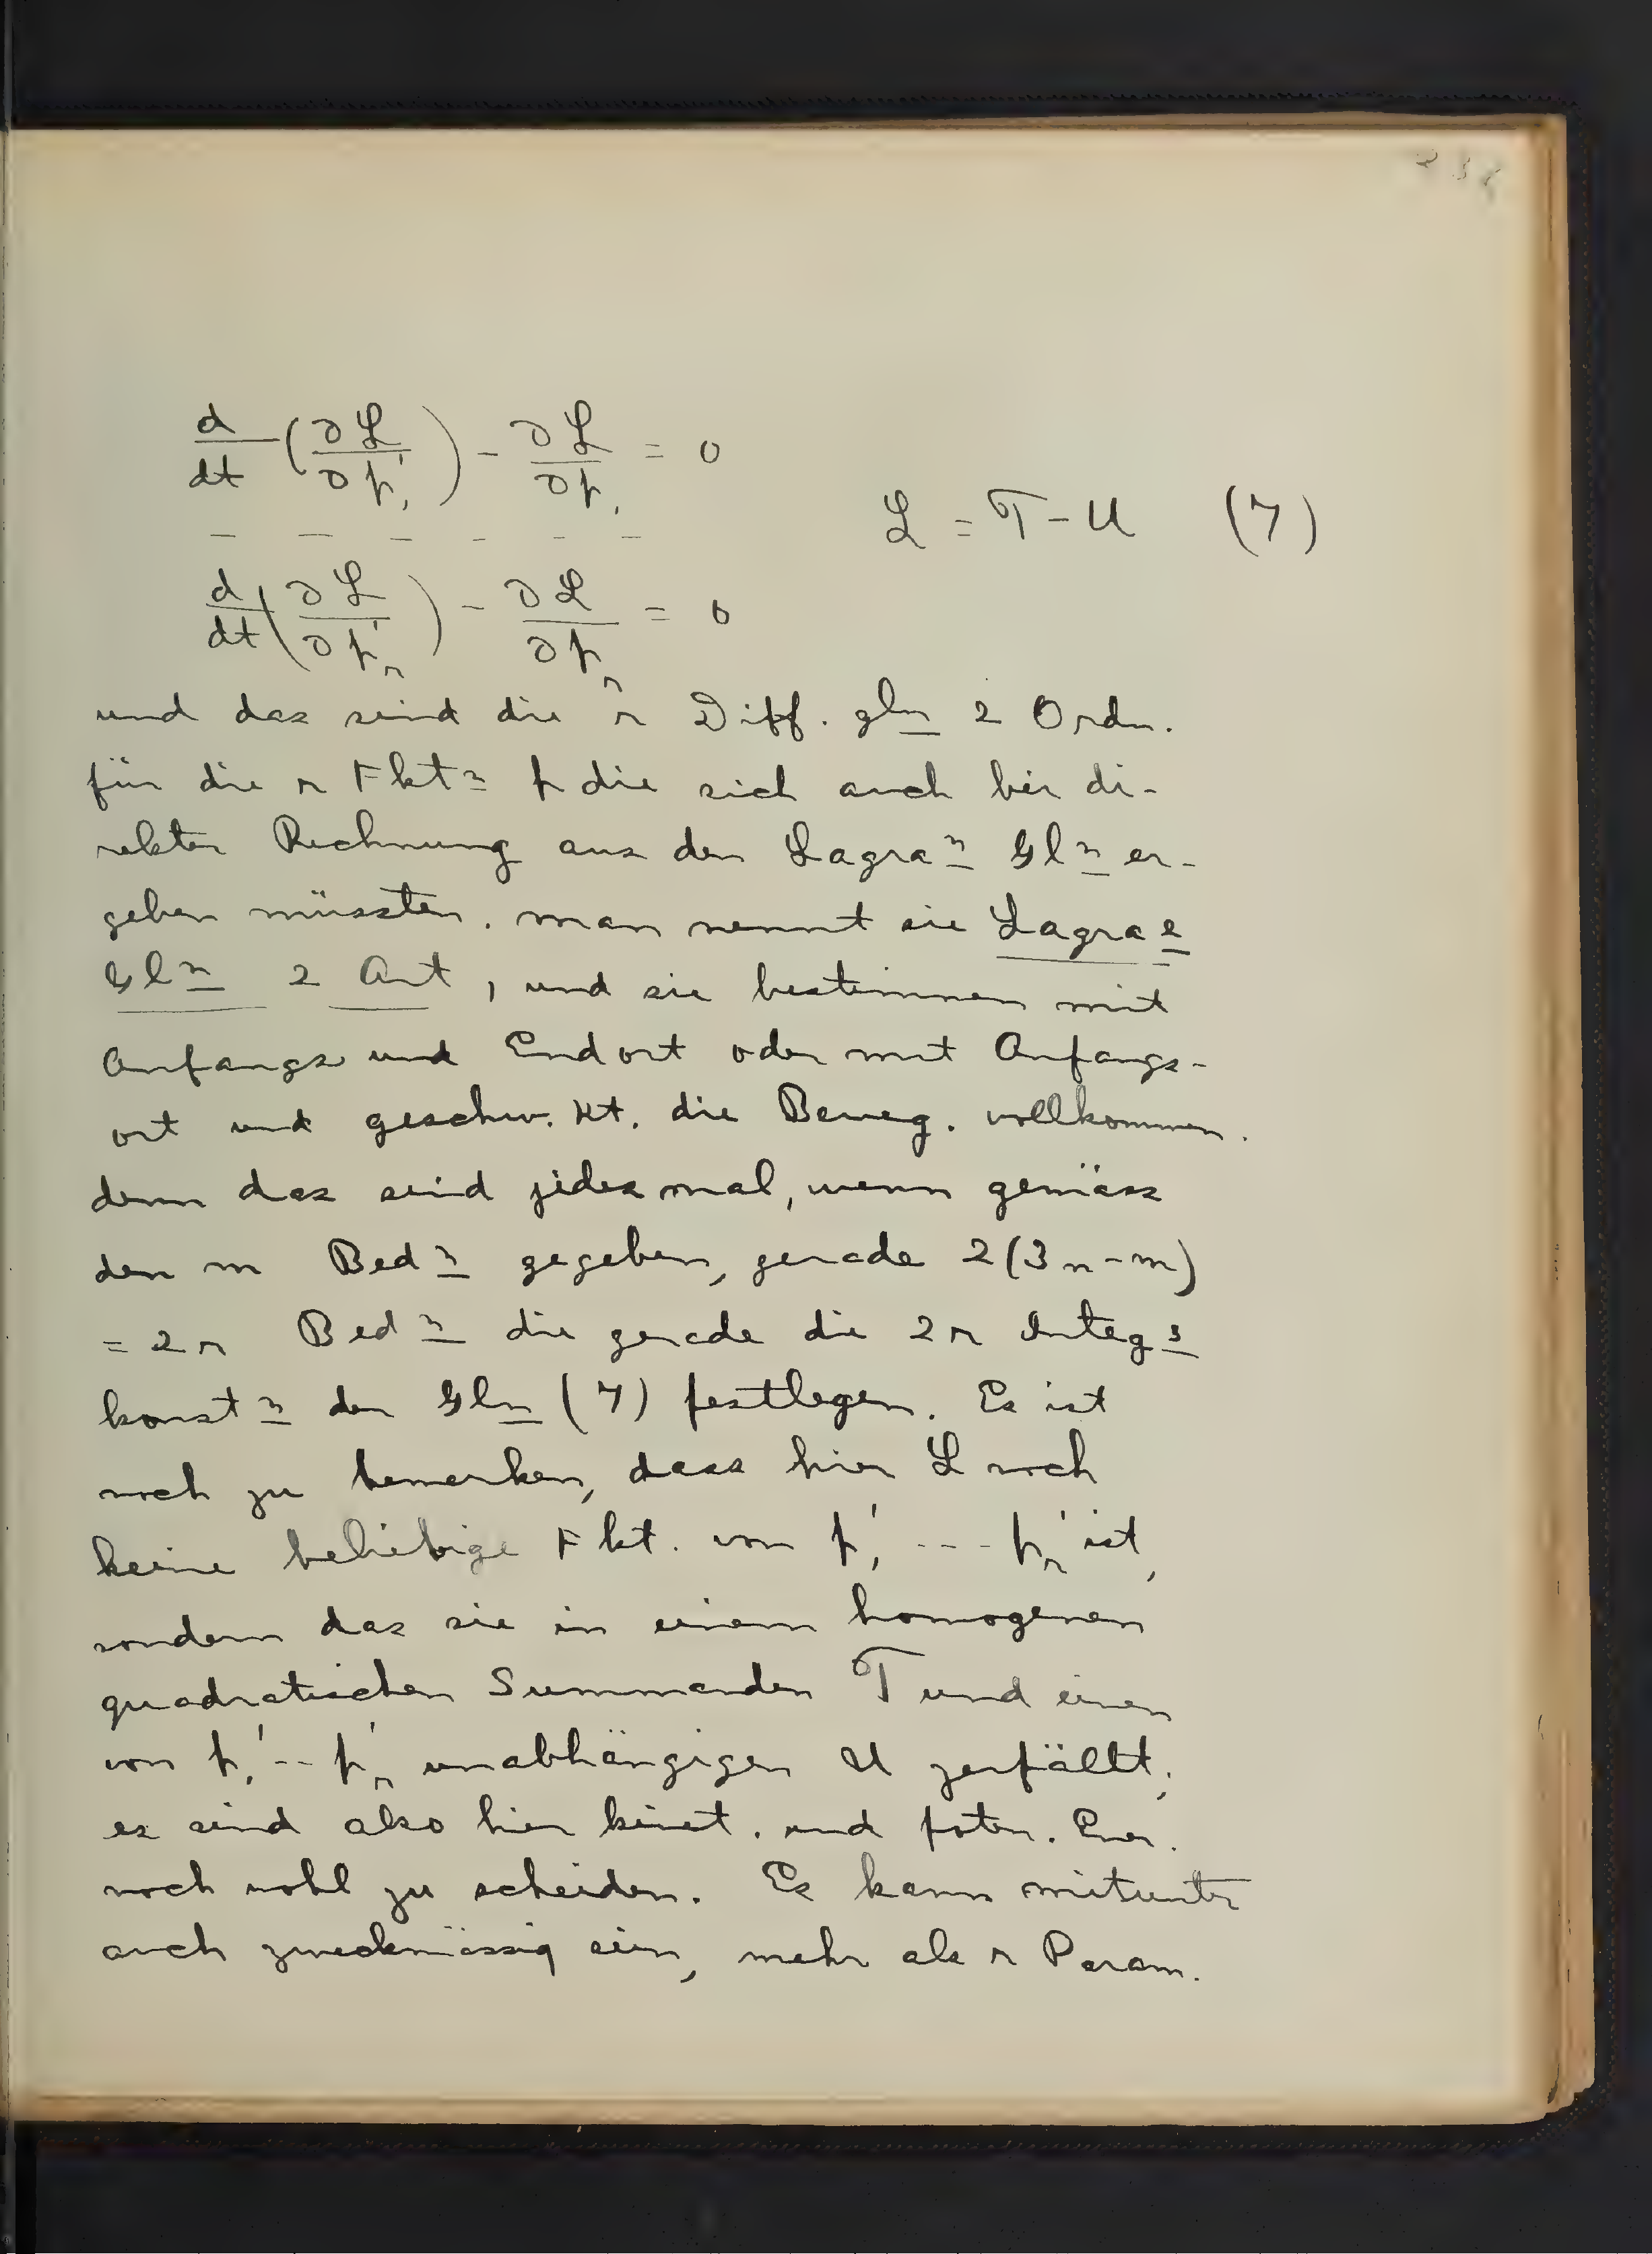 d/dt (∂L/∂p₁') - ∂L/∂p₁ = 0
L = T - U (7)
— — — — — —
d/dt (∂L/∂p'r) - ∂L/∂pr = 0
und das sind die r Diff. gln 2 Ordn.
für die r Fktn p die sich auch bei di-
rekter Rechnung aus den Lagran Gln er-
geben müssten. man nennt sie Lagrae
Gln 2 Art, und sie bestimmen mit
Anfangs und Endort oder mit Anfangs-
ort und geschw. kt. die Beweg. vollkommen.
denn das sind jedesmal, wenn gemäss
den m Bedn gegeben, gerade 2(3n-m)
= 2r Bedn die gerade die 2r Integs
konstn der Gln (7) festlegen. Es ist
noch zu bemerken, dass hier L noch
keine beliebige Fkt. von p₁' --- p'r ist,
sondern das sie in einem homogenen
quadratischen Summanden T und einen
von p₁' -- p'r unabhängigen U zerfällt;
es sind also hier kinet. und poten. Ener.
noch wohl zu scheiden. Es kann mitunter
auch zweckmässig sein, mehr als r Param.